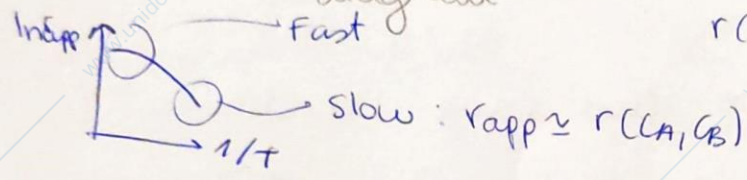 Fast
r(
slow : rapp ≃ r(CA, CB)
1/T